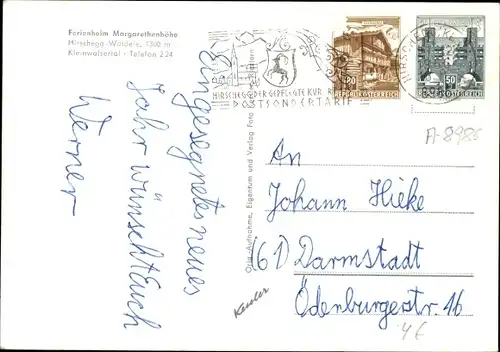 Ferienheim Margarethenhöhe
Hirschegg-Wäldele, 1300 m
Kleinwalsertal - Telefon 224
Ein gesegnetes neues
Jahr wünscht Euch
Werner
HIRSCHEGG DER GEPFLEGTE KUR
POSTSONDERTARIF
REPUBLIK ÖSTERREICH
50
REPUBLIK ÖSTERREICH
A-8986
Orig.-Aufnahme, Eigentum und Verlag Foto
An
Johann Hieke
(61) Darmstadt
Ödenburgerstr. 16
Kessler
4€